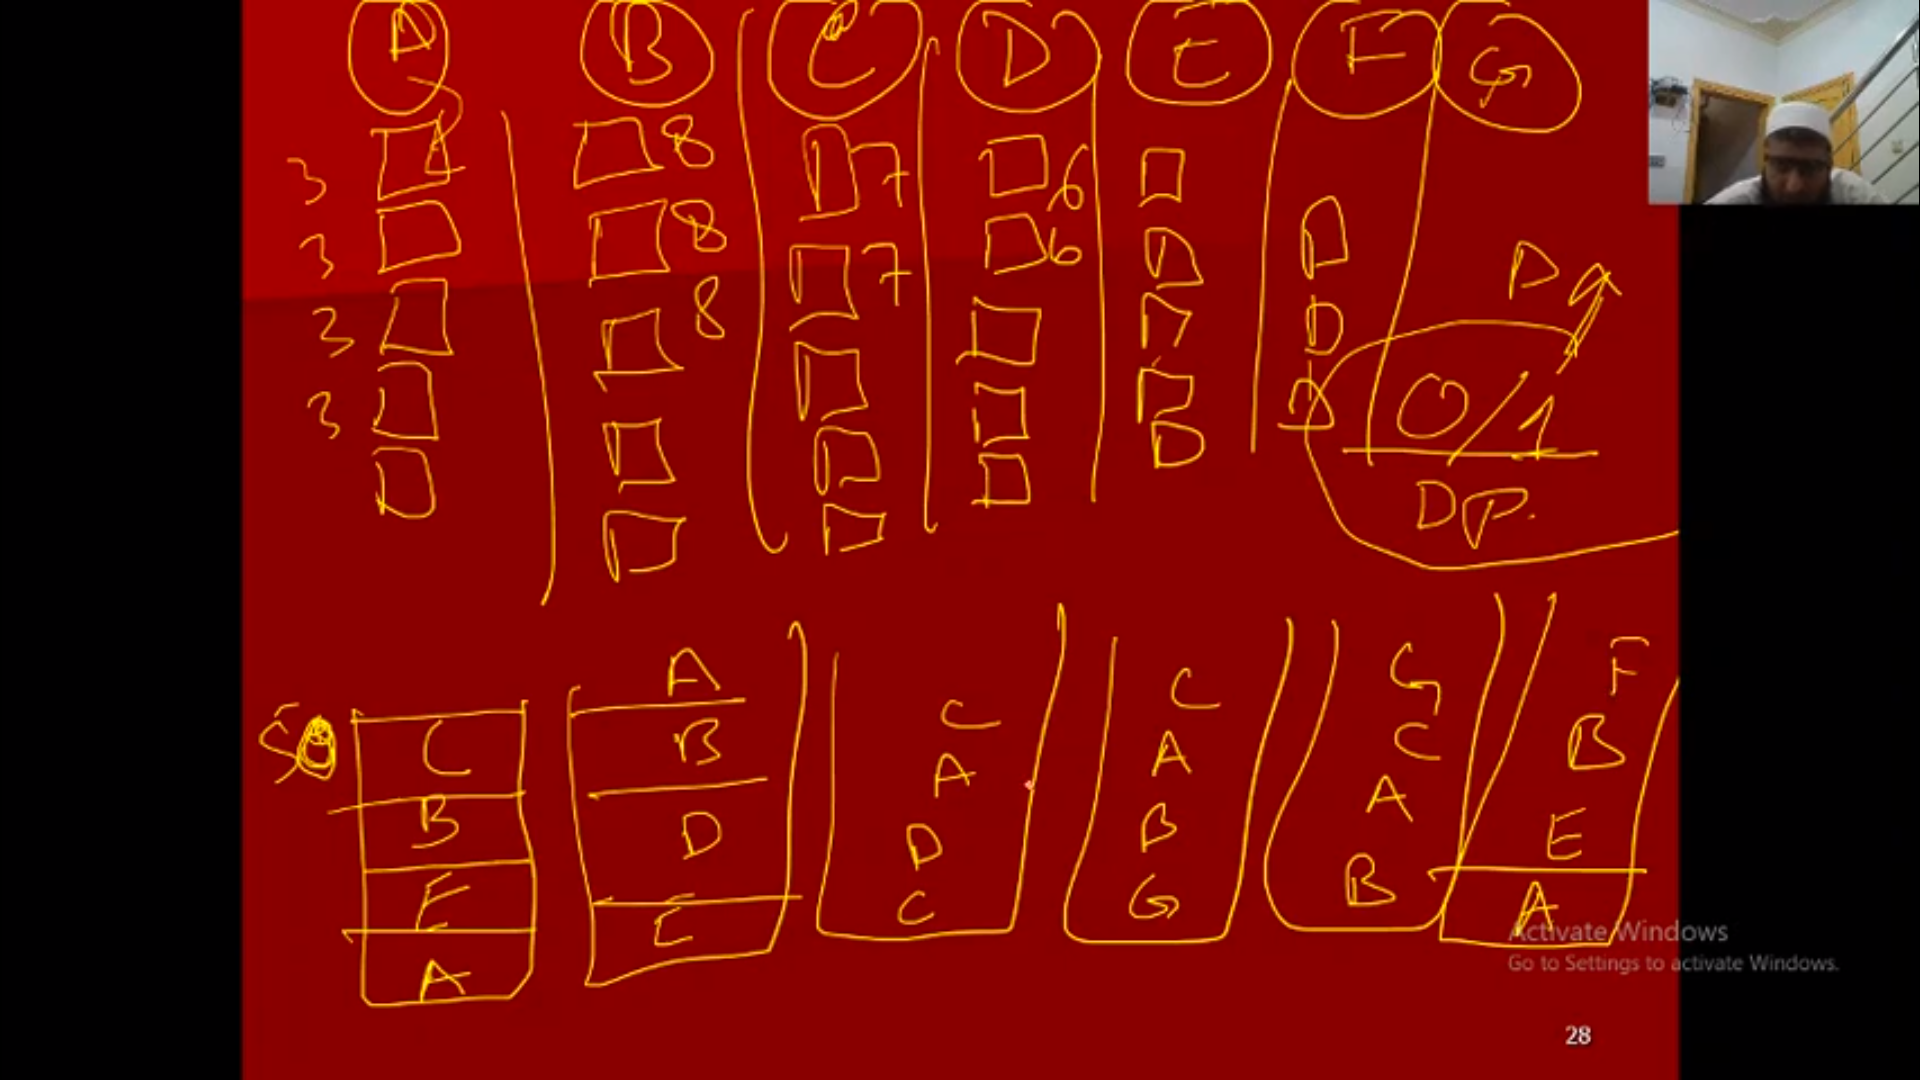 A B C D E F G
3 8 7 6
3 8 7 6
3 8
3
0/1
DP.
50
C
B
E
A
A
B
D
E
C
A
D
C
C
A
B
G
G
C
A
B
F
B
E
A
Activate Windows
Go to Settings to activate Windows.
28